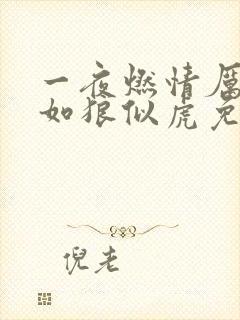 一夜燃情厲
如狼似虎免
倪老